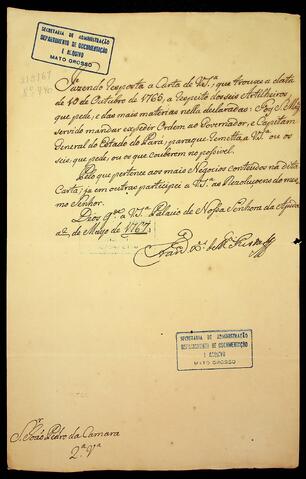 SECRETARIA DE ADMINISTRAÇÃO
DEPARTAMENTO DE DOCUMENTAÇÃO
E ARQUIVO
MATO GROSSO
Fazendo resposta a Carta de V.S.ª, que trouxe a data
de 10 de Outubro de 1766, a respeito dos seis Artilheiros,
que pede, e das mais materias nella declaradas: Foy S. Mag.
servido mandar expedir Ordem ao Governador, e Capitam
General do Estado do Pará, para que remetta a V.S.ª ou os
seis, que pede, ou os que couberem no possivel.
Pelo que pertence aos mais Negocios conteudos na dita
Carta; ja em outras participei a V.S.ª as Rezoluçoens do mes-
mo Senhor.
Deos g.de a V.S.ª Palacio de Nossa Senhora da Ajuda
a 2 de Março de 1767.
Fran
SECRETARIA DE ADMINISTRAÇÃO
DEPARTAMENTO DE DOCUMENTAÇÃO
E ARQUIVO
MATO GROSSO
S.r João Pedro da Camara
2.ª V.ª